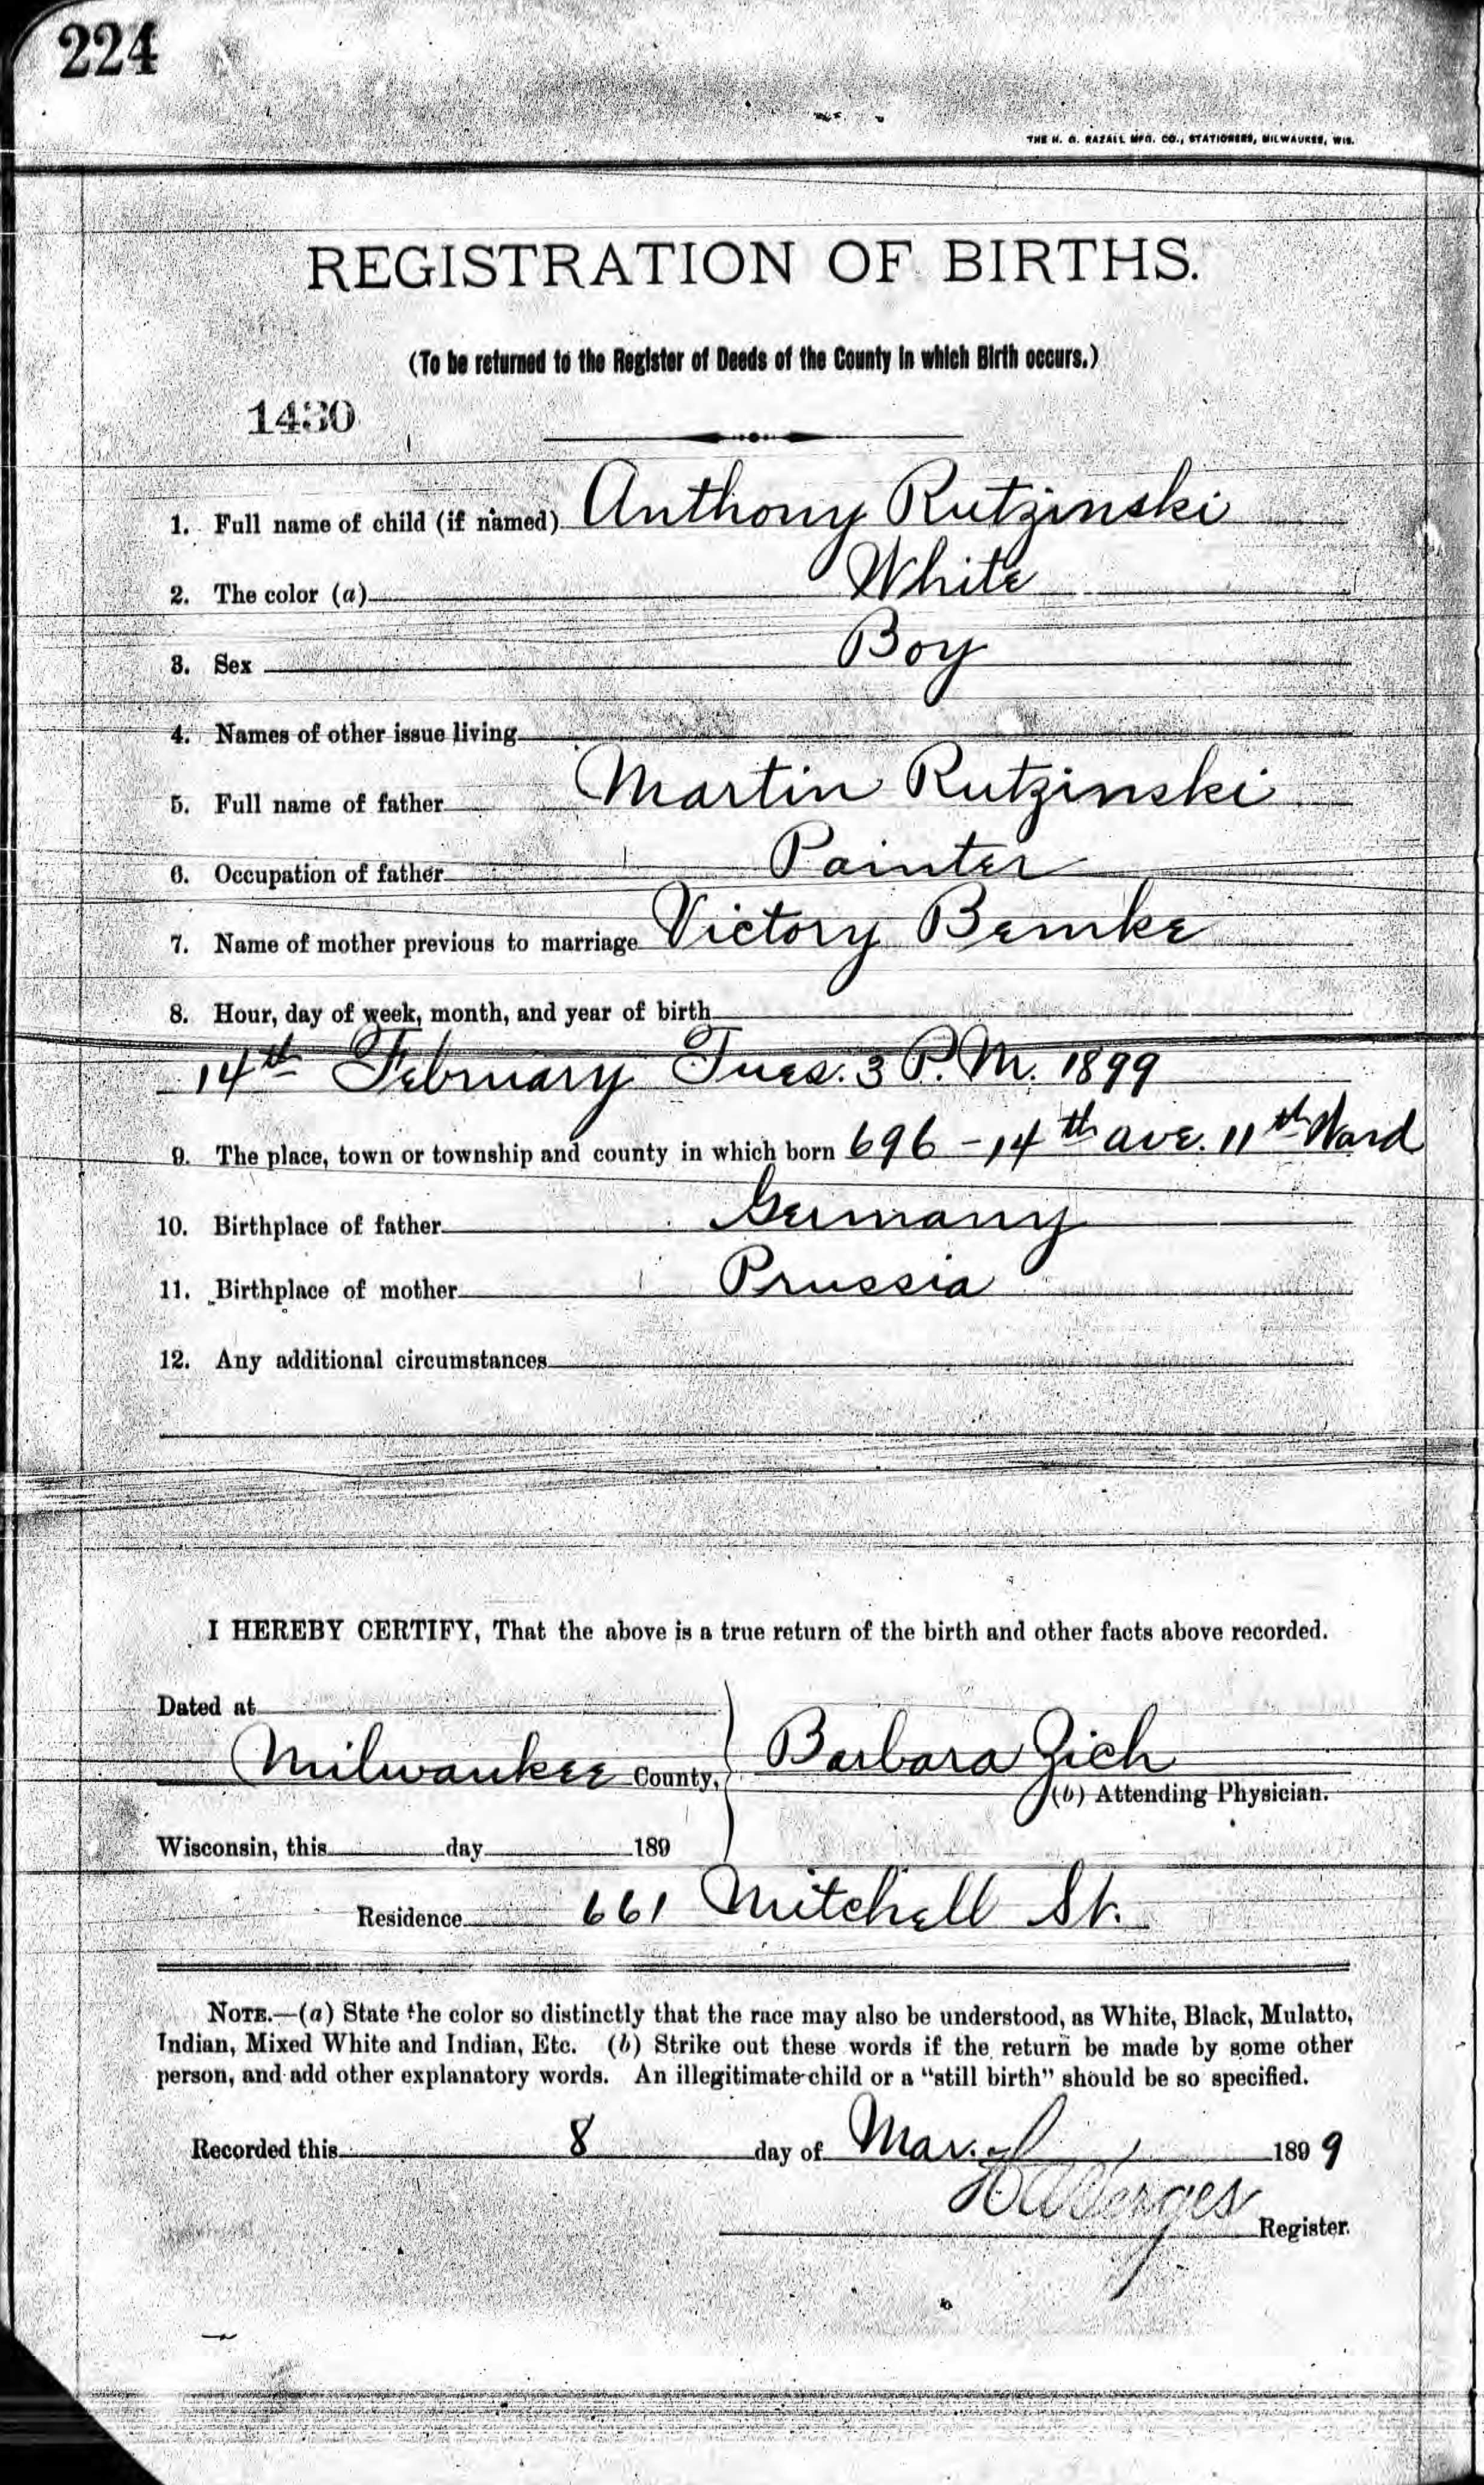 224
THE H. G. RAZALL MFG. CO., STATIONERS, MILWAUKEE, WIS.
REGISTRATION OF BIRTHS.
(To be returned to the Register of Deeds of the County in which Birth occurs.)
1430
1. Full name of child (if named) Anthony Rutzinski
2. The color (a) White
3. Sex Boy
4. Names of other issue living
5. Full name of father Martin Rutzinski
6. Occupation of father Painter
7. Name of mother previous to marriage Victory Bemke
8. Hour, day of week, month, and year of birth
14th February Tues. 3 P.M. 1899
9. The place, town or township and county in which born 696 - 14th ave. 11th Ward
10. Birthplace of father Germany
11. Birthplace of mother Prussia
12. Any additional circumstances
I HEREBY CERTIFY, That the above is a true return of the birth and other facts above recorded.
Dated at
Milwaukee County, Barbara Zich
(b) Attending Physician.
Wisconsin, this day 189
Residence 661 Mitchell St.
NOTE.—(a) State the color so distinctly that the race may also be understood, as White, Black, Mulatto,
Indian, Mixed White and Indian, Etc. (b) Strike out these words if the return be made by some other
person, and add other explanatory words. An illegitimate child or a "still birth" should be so specified.
Recorded this 8 day of Mar. 1899
Register.